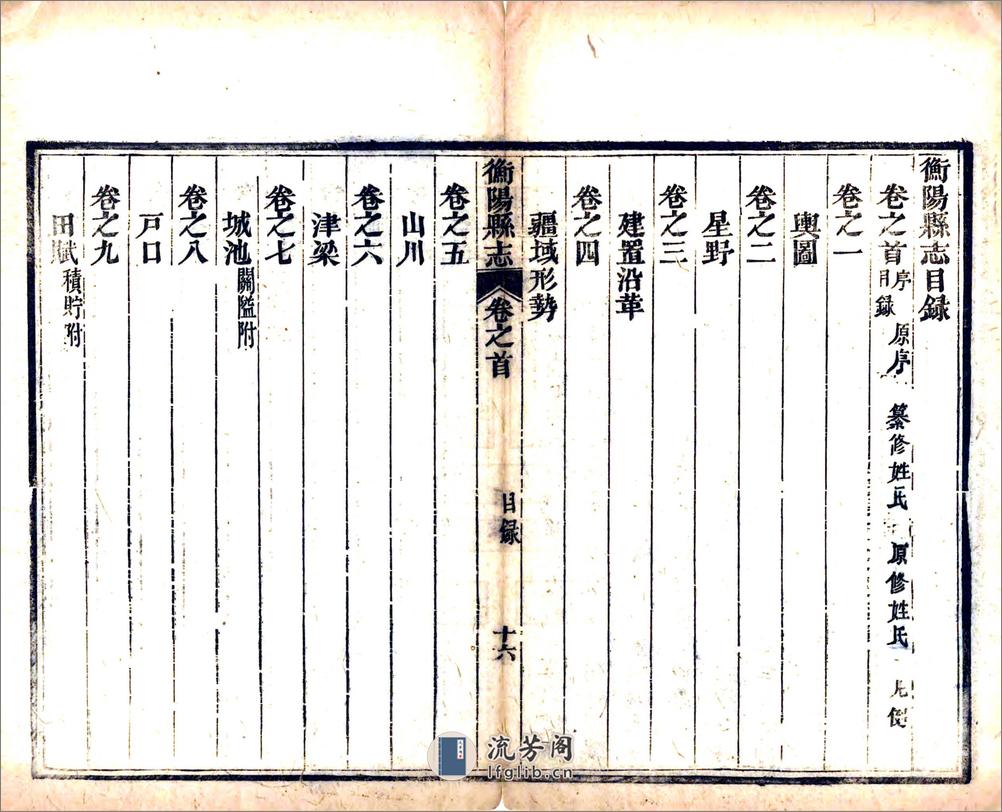 衡陽縣志目録
卷之首 序 目録 原序 纂修姓氏 原修姓氏 凡
卷之一
輿圖
卷之二
星野
卷之三
建置沿革
卷之四
疆域形勢
衡陽縣志 卷之首 目録 十六
卷之五
山川
卷之六
津梁
卷之七
城池 關隘附
卷之八
戸口
卷之九
田賦 積貯附
流芳阁
lfglib.cn